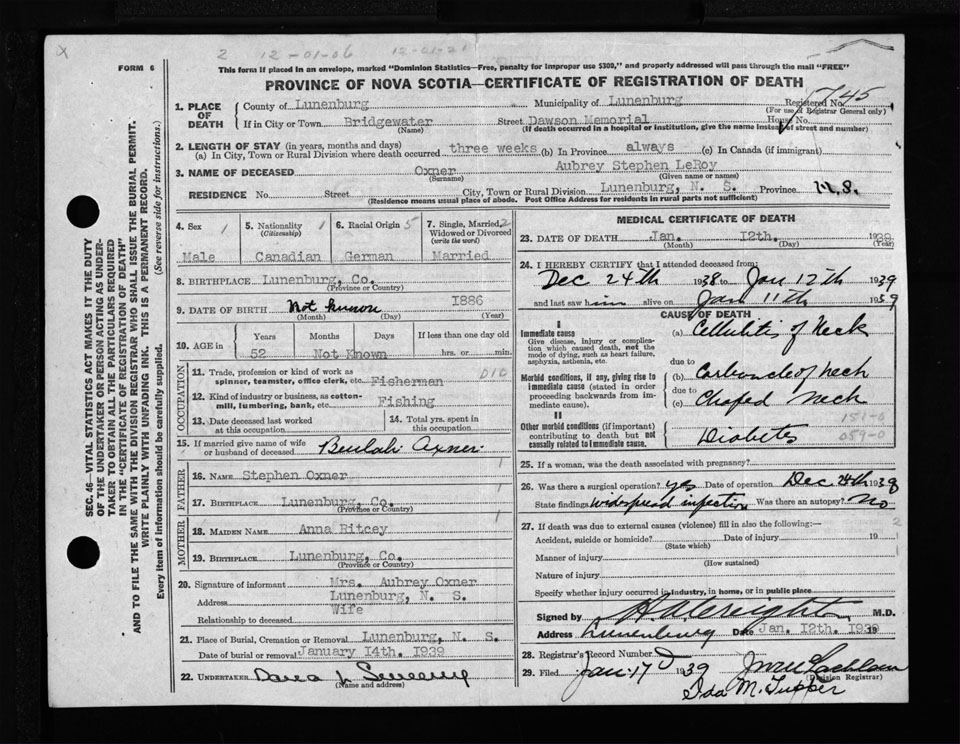 X
2 12-01-06 12-01-21
FORM 6
This form if placed in an envelope, marked "Dominion Statistics—Free, penalty for improper use $300," and properly addressed will pass through the mail "FREE"
PROVINCE OF NOVA SCOTIA—CERTIFICATE OF REGISTRATION OF DEATH
1. PLACE OF DEATH
County of Lunenburg Municipality of Lunenburg Registered No. 5745
(For use of Registrar General only)
If in City or Town Bridgewater Street Dawson Memorial House No.
(Name) (If death occurred in a hospital or institution, give the name instead of street and number)
2. LENGTH OF STAY (in years, months and days)
(a) In City, Town or Rural Division where death occurred three weeks (b) In Province always (c) In Canada (if immigrant)
3. NAME OF DECEASED Oxner Aubrey Stephen LeRoy
(Surname) (Given name or names)
RESIDENCE No. Street City, Town or Rural Division Lunenburg, N. S. Province N.S.
(Residence means usual place of abode. Post Office Address for residents in rural parts not sufficient)
4. Sex 1 5. Nationality 1 6. Racial Origin 5 7. Single, Married, 2
(Citizenship) Widowed or Divorced
(write the word)
Male Canadian German Married
8. BIRTHPLACE Lunenburg, Co.
(Province or Country)
9. DATE OF BIRTH Not known I886
(Month) (Day) (Year)
10. AGE IN Years Months Days If less than one day old
52 Not Known hrs. or min.
OCCUPATION
11. Trade, profession or kind of work as
spinner, teamster, office clerk, etc. Fisherman 010
12. Kind of industry or business, as cotton-
mill, lumbering, bank, etc. Fishing
13. Date deceased last worked at this occupation 14. Total yrs. spent in this occupation
15. If married give name of wife
or husband of deceased Beulah Oxner
FATHER
16. NAME Stephen Oxner 1
17. BIRTHPLACE Lunenburg, Co. 1
(Province or Country)
MOTHER
18. MAIDEN NAME Anna Ritcey 1
19. BIRTHPLACE Lunenburg, Co.
(Province or Country)
20. Signature of informant Mrs. Aubrey Oxner
Address Lunenburg, N. S.
Relationship to deceased Wife
21. Place of Burial, Cremation or Removal Lunenburg, N. S.
Date of burial or removal January I4th. I939
22. UNDERTAKER Dana L Sweeny
(Name and address)
MEDICAL CERTIFICATE OF DEATH
23. DATE OF DEATH Jan. I2th. 1939
(Month) (Day) (Year)
24. I HEREBY CERTIFY that I attended deceased from:
Dec 24th 1938 to Jan 12th 1939
and last saw him alive on Jan 11th 1939
CAUSE OF DEATH
I
Immediate cause (a) Cellulitis of Neck
Give disease, injury or complication which caused death, not the mode of dying, such as heart failure, asphyxia, asthenia, etc.
due to
Morbid conditions, if any, giving rise to immediate cause (stated in order proceeding backwards from immediate cause).
(b) Carbuncle of neck
due to
(c) Chafed Neck
II
Other morbid conditions (if important) contributing to death but not causally related to immediate cause.
151-0
Diabetes 059-0
25. If a woman, was the death associated with pregnancy?
26. Was there a surgical operation? yes Date of operation Dec 28th 1938
State findings Widespread infection Was there an autopsy? No
27. If death was due to external causes (violence) fill in also the following:— 2
Accident, suicide or homicide? Date of injury 19
(State which)
Manner of injury
(How sustained)
Nature of injury
Specify whether injury occurred in industry, in home, or in public place
Signed by M.D.
Address Lunenburg Date Jan. I2th. I939 19
28. Registrar's Record Number
29. Filed Jan 17 1939
(Division Registrar)
Ida M. Tupper
SEC. 46—VITAL STATISTICS ACT MAKES IT THE DUTY
OF THE UNDERTAKER OR PERSON ACTING AS UNDER-
TAKER TO OBTAIN ALL THE PARTICULARS REQUIRED
IN THE "CERTIFICATE OF REGISTRATION OF DEATH"
AND TO FILE THE SAME WITH THE DIVISION REGISTRAR WHO SHALL ISSUE THE BURIAL PERMIT.
WRITE PLAINLY WITH UNFADING INK. THIS IS A PERMANENT RECORD.
Every item of information should be carefully supplied. (See reverse side for instructions.)